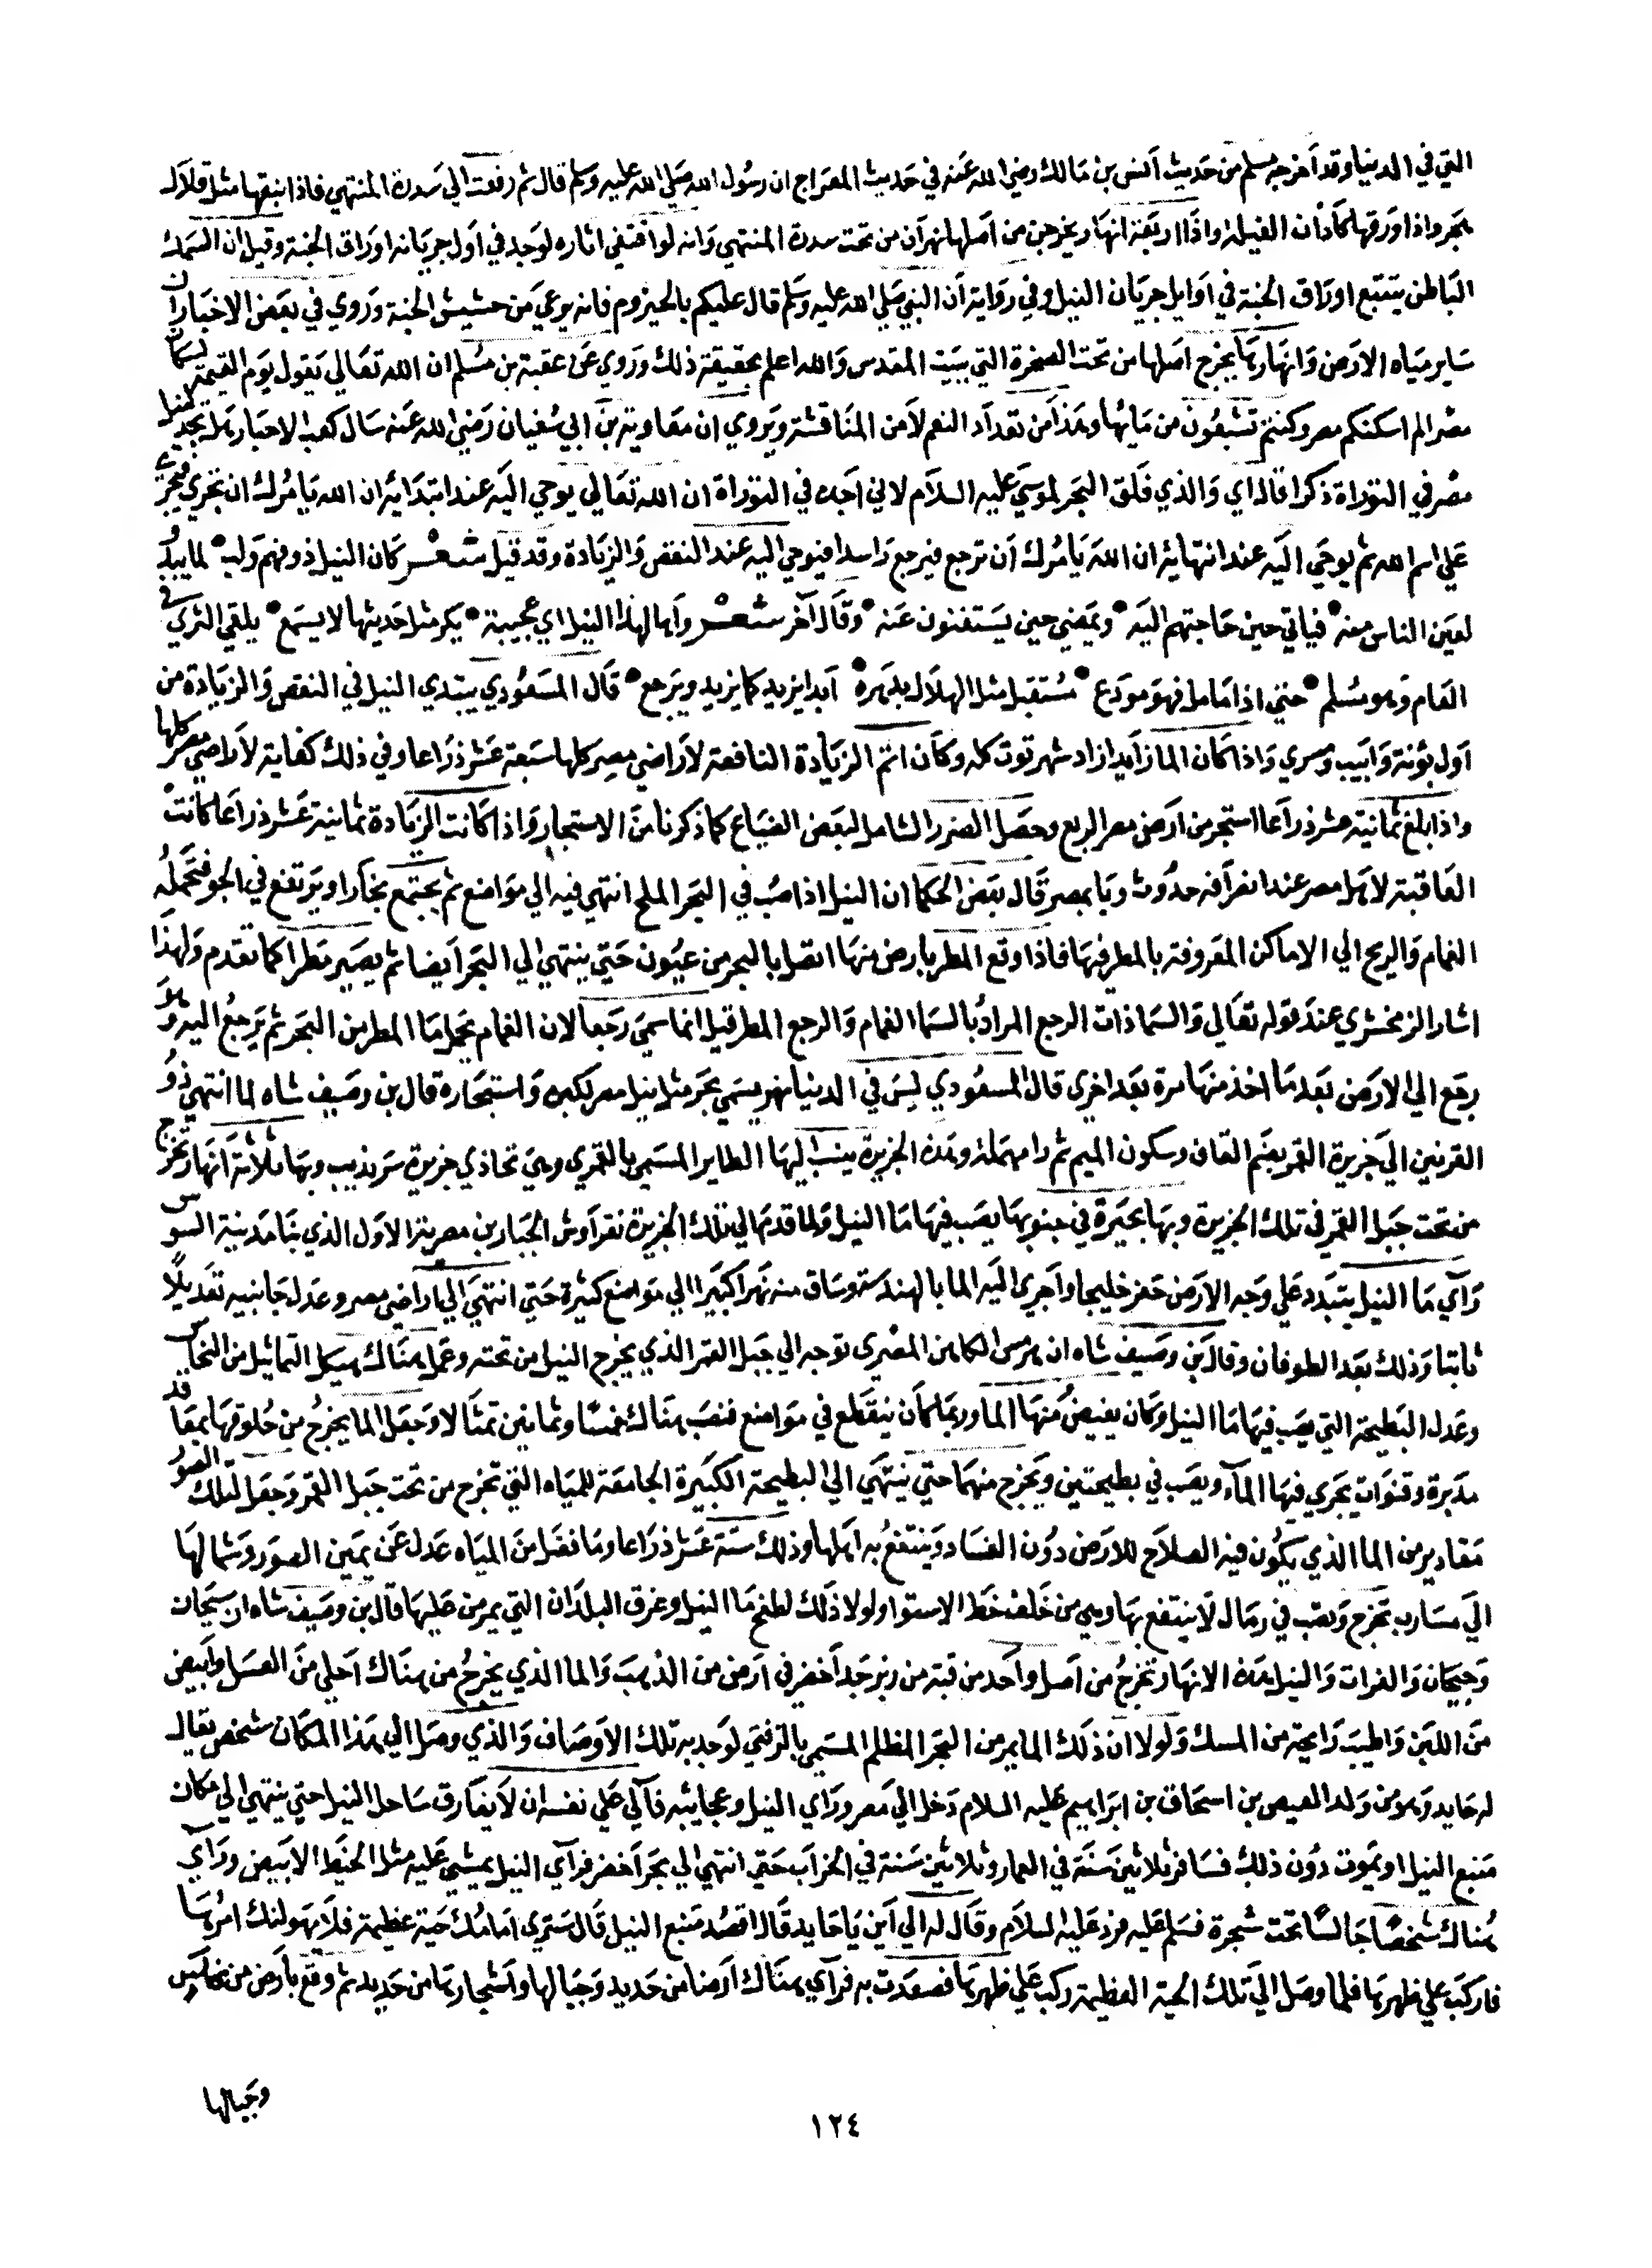 التي في الدنيا وقد أخرجه مسلم من حديث أنس بن مالك رضي الله عنه في حديث المعراج ان رسول الله صلي الله عليه وسلم قال ثم رفعت الي سدرة المنتهي فاذا نبقها مثل قلال
هجر واذا ورقها كاذان الفيلة واذا اربعة انهار يخرجن من أصلها نهران من تحت سدرة المنتهي وانه لو اقتفي اثاره لوجد في اول جريانه اوراق الجنة وقيل ان السمك
الباطن يتتبع اوراق الجنة في اوايل جريان النيل وفي رواية أن النبي صلي الله عليه وسلم قال عليكم بالحيزوم فانه يرعي من حشيش الجنة وروي في بعض الاخبار ان
ساير مياه الارض وانهارها يخرج اصلها من تحت الصخرة التي ببيت المقدس والله اعلم بحقيقة ذلك وروي عن عقبة بن مسلم ان الله تعالي يقول يوم القيمة لسكان
مصر الم اسكنكم مصر وكنتم تشبعون من مايها وهذا من تعداد النعم لا من المناقشة ويروي ان معاوية بن ابي سفيان رضي الله عنه سال كعب الاحبار هل تجد لنيل
مصر في التوراة ذكرا قال اي والذي فلق البحر لموسي عليه السلام لاني اجده في التوراة ان الله تعالي يوحي اليه عند ابتدايه ان الله يامرك ان تجري فيجري
علي اسم الله ثم يوحي اليه عند انتهايه ان الله يامرك أن ترجع فيرجع راسدا فيوحي اليه عند النقص والزيادة وقد قيل شعر كان النيل ذو فهم ولب لما يبد
لعين الناس منه فياتي حين حاجتهم اليه ويمضي حين يستغنون عنه وقال آخر شعر واها لهذا النيل اي عجيبة بكر مثل حديثها لا يسمع يلقي الثري في
العام وهو مسلم حتي اذا مامل فهو مودع مستقبل مثل الهلال بدهره ابدا يزيد كما يزيد ويرجع قال المسعودي يبتدي النيل في النقص والزيادة من
اول بؤنة وابيب ومسري واذا كان الما زايدا زاد شهر توت كله وكان اتم الزيادة النافعة لاراضي مصر كلها سبعة عشر ذراعا وفي ذلك كفاية لاراضي مصر كلها
واذا بلغ ثمانية عشر ذراعا استبحر من ارض مصر الربع وحصل الضرر الشامل لبعض الضياع كما ذكرنا من الاستبحار واذا كانت الزيادة ثمانية عشر ذراعا كانت
العاقبة لاهل مصر عند انصرافه حدوث وبا بمصر قال بعض الحكما ان النيل اذا صب في البحر الملح انتهي فيه الي مواضع ثم يجتمع بخارا ويرتفع في الجو فتحمله
الغمام والريح الي الاماكن المعروفة بالمطر فيها فاذا وقع المطر بارض منها اتصل بالبحر من عيون حتي ينتهي الي البحر أيضا ثم يصير مطرا كما تقدم ولهذا
اشار الزمخشري عند قوله تعالي والسما ذات الرجع المراد بالسما الغمام والرجع المطر قيل انما سمي رجعا لان الغمام يحمل ما المطر من البحر ثم يرجع اليه ولا
رجع الي الارض بعد ما اخذ منها مرة بعد اخري قال المسعودي ليس في الدنيا نهر يسمي بحر مثل نيل مصر لكبره واستبحاره قال بن وصيف شاه لما انتهي ذو
القرنين الي جزيرة القمر بضم القاف وسكون الميم ثم را مهملة وهذه الجزيرة ينسب اليها الطاير المسمي بالقمري وهي تحاذي جزيرة سرنديب وبها ثلاثة انهار تخرج
من تحت جبل القمر في تلك الجزيرة وبها بحيرة في جنوبها يصب فيها ما النيل ولما قدم الي تلك الجزيرة نقراوش الجبار بن مصريم الاول الذي بنا مدينة السوس
رآي ما النيل يتبدد علي وجه الارض حفر خليجا واجري اليه الما بالهندسة وساق منه نهرا كبيرا الي مواضع كثيرة حتي انتهي الي اراضي مصر وعدل جانبيه تعديلا
ثابتا وذلك بعد الطوفان وقال بن وصيف شاه ان هرمس الكاهن المصري توجه الي جبل القمر الذي يخرج النيل من تحته وعمل هناك هيكل التماثيل من النحاس
وعدل البطيحة التي يصب فيها ما النيل وكان يفيض منها الما وربما كان ينقطع في مواضع فنصب هناك خمسا وثمانين تمثالا وجعل الما يخرج من حلوقها بمعاقد
مدبرة وقنوات يجري فيها المآء ويصب في بطيحتين ويخرج منهما حتي ينتهي الي البطيحة الكبيرة الجامعة للمياه التي تخرج من تحت جبل القمر وجعل لتلك الصور
مقادير من الما الذي يكون فيه الصلاح للارض دون الفساد وينتفع به اهلها وذلك ستة عشر ذراعا وما فضل من المياه عدل عن يمين الصور وشمالها
الي مسارب تخرج وتصب في رمال لا ينتفع بها وهي من خلف خط الاستوا ولولا ذلك لطفح ما النيل وغرق البلدان التي يمر من عليها قال بن وصيف شاه ان سيحان
وجيحان والفرات والنيل هذه الانهار تخرج من اصل واحد من قبة من زبرجد أخضر في ارض من الذهب والما الذي يخرج من هناك احلي من العسل وابيض
من اللبن واطيب رايحة من المسك ولولا ان ذلك الما يمر من البحر المظلم المسمي بالزفتي لوجد به تلك الاوصاف والذي وصل الي هذا المكان شخص يقال
له حايد وهو من ولد العيص بن اسحاق بن ابراهيم عليه السلام دخل الي مصر وراي النيل وعجايبه فآلي علي نفسه ان لا يفارق ساحل النيل حتي ينتهي الي مكان
منبع النيل او يموت دون ذلك فسافر ثلاثين سنة في العمار وثلاثين سنة في الخراب حتي انتهي الي بحر أخضر فرآي النيل يمشي عليه مثل الخيط الابيض ورآي
هناك شخصا جالسا تحت شجرة فسلم عليه فرد عليه السلام وقال له الي أين يا حايد قال اقصد منبع النيل قال ستري امامك حية عظيمة فلا يهولنك امرها
فاركب علي ظهرها فلما وصل الي تلك الحية العظيمة ركب علي ظهرها فصعدت به فرآي هناك ارضا من حديد وجبالها واشجارها من حديد ثم وقع بارض من نحاس
وجبالها
١٢٤